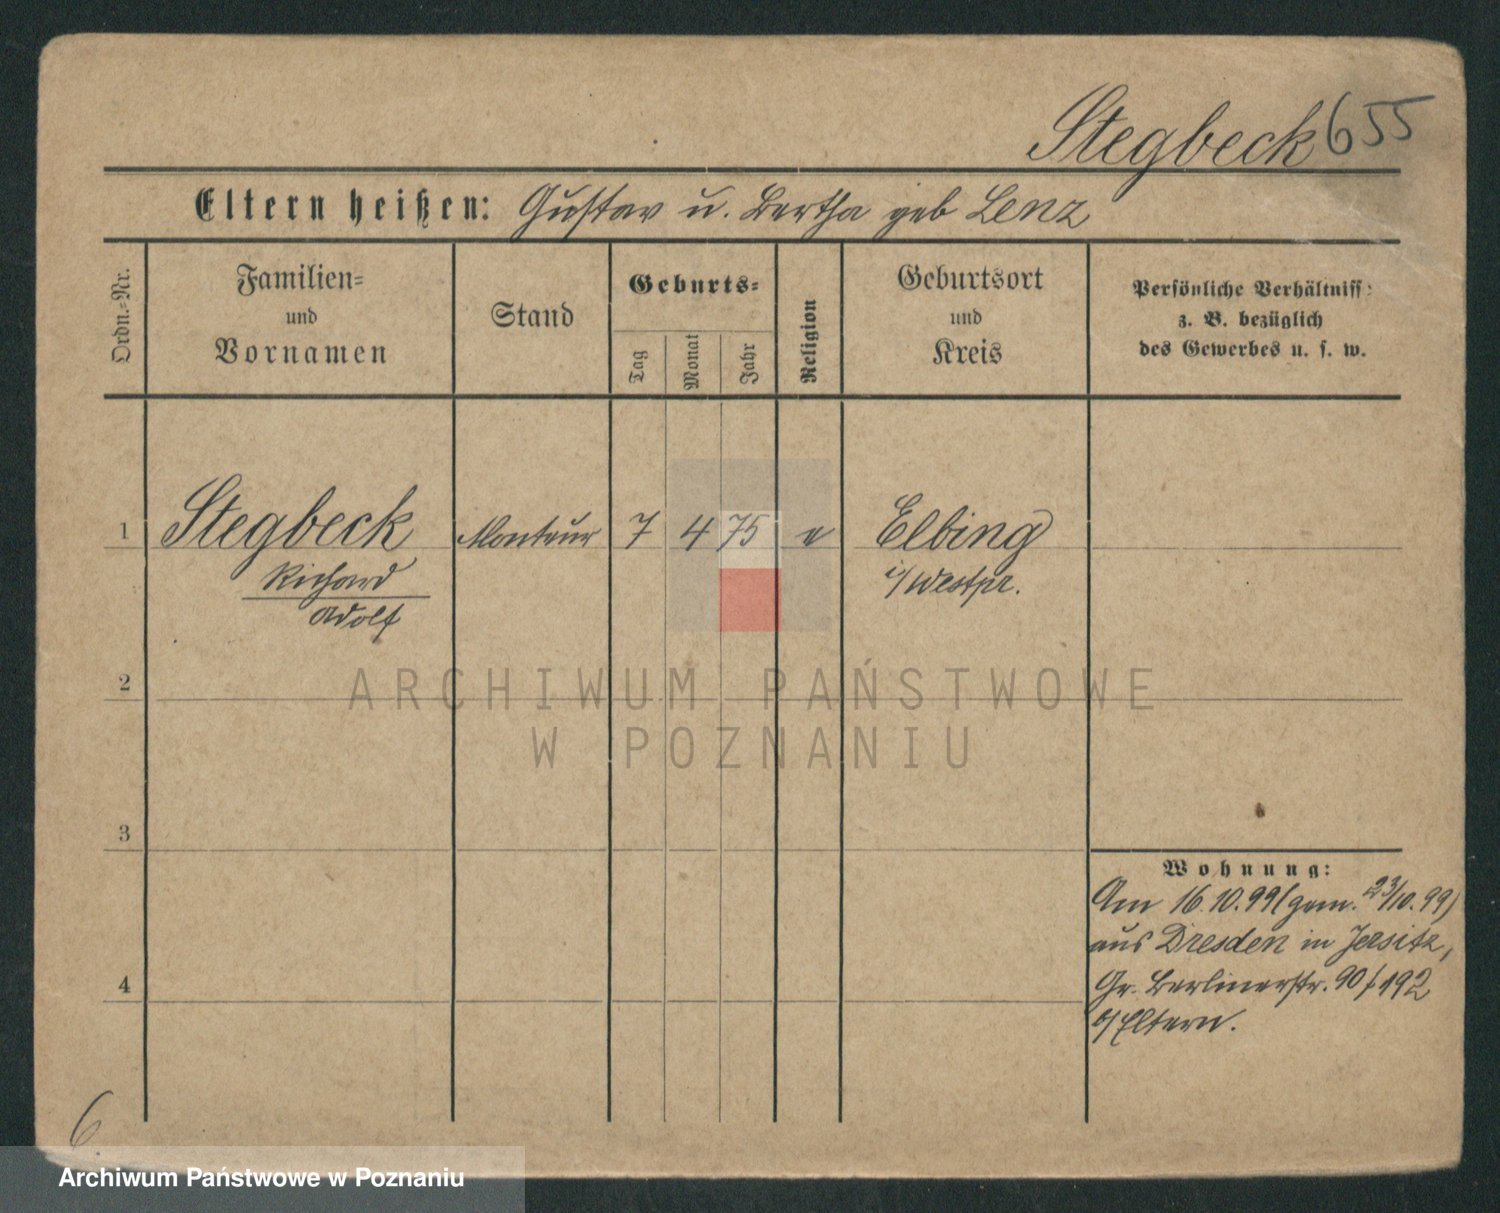 Stegbeck 655
Eltern heißen: Gustav u. Bertha geb Lenz
Ordn.-Nr.
Familien-
und
Vornamen
Stand
Geburts-
Tag
Monat
Jahr
Religion
Geburtsort
und
Kreis
Persönliche Verhältniss
z. B. bezüglich
des Gewerbes u. s. w.
1 Stegbeck Monteur 7 4 75 e Elbing
Richard i/Westpr.
Adolf
2
ARCHIWUM PAŃSTWOWE
W POZNANIU
3
Wohnung:
Am 16.10.99 (gem. 23/10.99)
aus Dresden in Jersitz,
4
Gr. Berlinerstr. 90/192
b/Eltern.
6
Archiwum Państwowe w Poznaniu